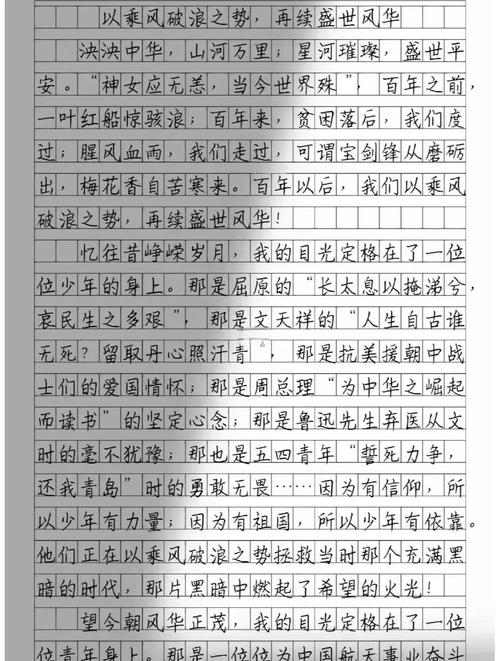 以乘风破浪之势，再续盛世风华
泱泱中华，山河万里；星河璀璨，盛世平
安。“神女应无恙，当今世界殊”，百年之前，
一叶红船惊骇浪；百年来，贫困落后，我们度
过；腥风血雨，我们走过，可谓宝剑锋从磨砺
出，梅花香自苦寒来。百年以后，我们以乘风
破浪之势，再续盛世风华！
忆往昔峥嵘岁月，我的目光定格在了一位
位少年的身上。那是屈原的“长太息以掩涕兮，
哀民生之多艰”，那是文天祥的“人生自古谁
无死？留取丹心照汗青”，那是抗美援朝中战
士们的爱国情怀；那是周总理“为中华之崛起
而读书”的坚定心念；那是鲁迅先生弃医从文
时的毫不犹豫；那也是五四青年“誓死力争，
还我青岛”时的勇敢无畏……因为有信仰，所
以少年有力量；因为有祖国，所以少年有依靠。
他们正在以乘风破浪之势拯救当时那个充满黑
暗的时代，那片黑暗中燃起了希望的火光！
望今朝风华正茂，我的目光定格在了一位
位青年身上。那是一位位为中国航天事业奋斗